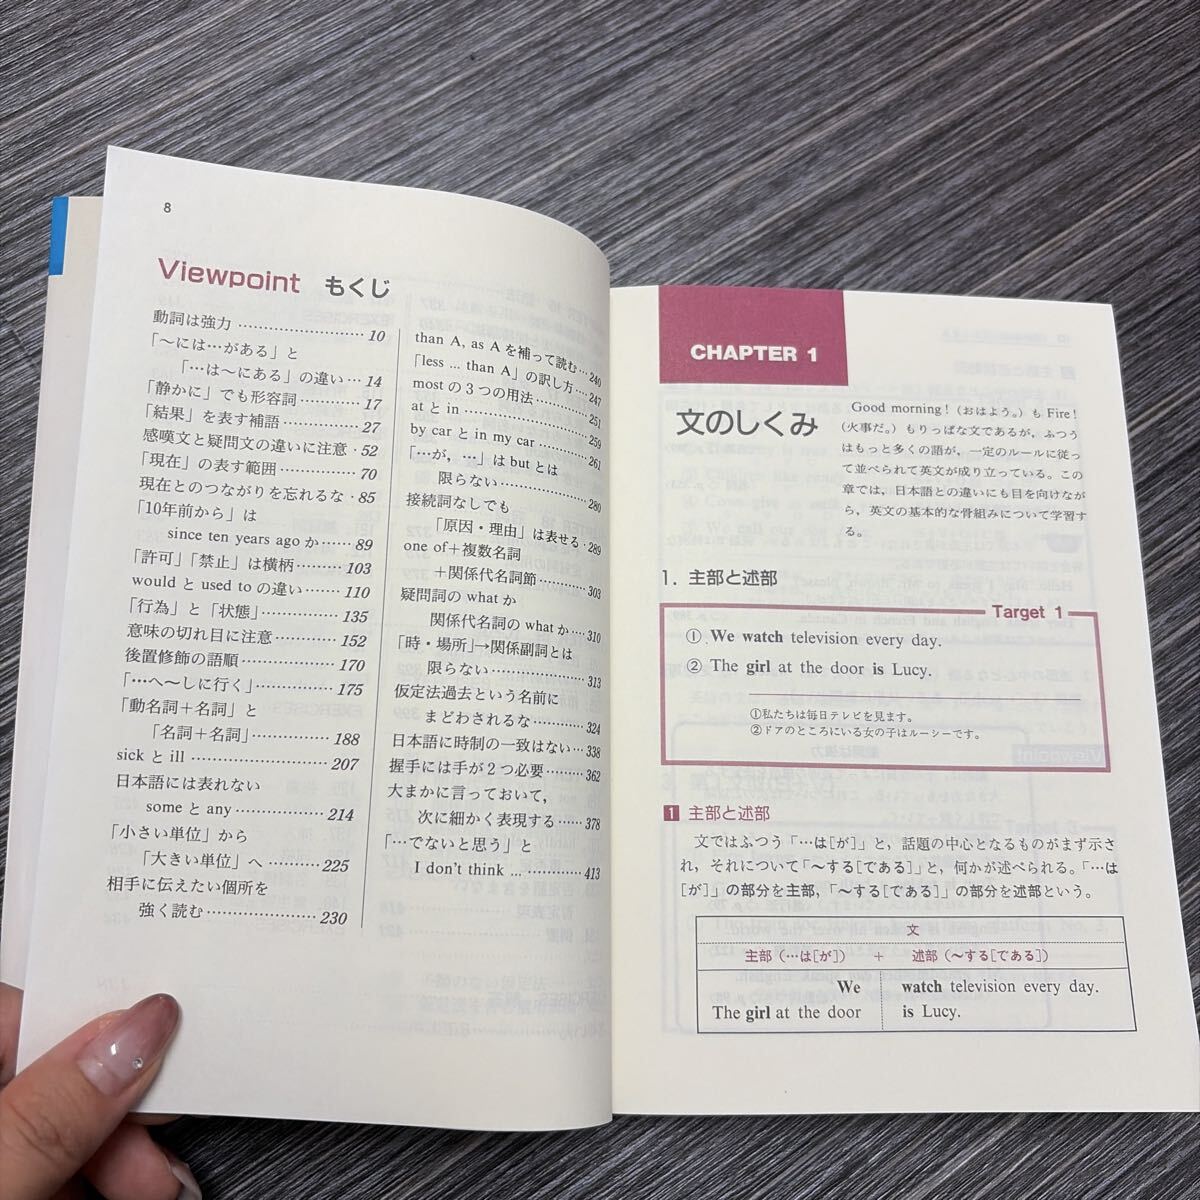 8
Viewpoint もくじ
動詞は強力 …………………… 10
「〜には…がある」と
「…は〜にある」の違い … 14
「静かに」でも形容詞 ……… 17
「結果」を表す補語 ………… 27
感嘆文と疑問文の違いに注意 · 52
「現在」の表す範囲 ………… 70
現在とのつながりを忘れるな · 85
「10年前から」は
since ten years ago か …… 89
「許可」「禁止」は横柄 ……… 103
would と used to の違い …… 110
「行為」と「状態」 …………… 135
意味の切れ目に注意 ………… 152
後置修飾の語順 ……………… 170
「…へ〜しに行く」 …………… 175
「動名詞+名詞」と
「名詞+名詞」 …………… 188
sick と ill …………………… 207
日本語には表れない
some と any ……………… 214
「小さい単位」から
「大きい単位」へ ………… 225
相手に伝えたい個所を
強く読む …………………… 230
than A, as A を補って読む … 240
「less ... than A」の訳し方 … 247
most の3つの用法 ………… 251
at と in ……………………… 259
by car と in my car ………… 261
「…が，…」は but とは
限らない …………………… 280
接続詞なしでも
「原因・理由」は表せる · 289
one of+複数名詞
+関係代名詞節 ………… 303
疑問詞の what か
関係代名詞の what か … 310
「時・場所」→関係副詞とは
限らない …………………… 313
仮定法過去という名前に
まどわされるな ………… 324
日本語に時制の一致はない … 338
握手には手が2つ必要 ……… 362
大まかに言っておいて，
次に細かく表現する …… 378
「…でないと思う」と
I don't think ... ………… 413
CHAPTER 1
文のしくみ
Good morning!（おはよう。）も Fire!
（火事だ。）もりっぱな文であるが，ふつう
はもっと多くの語が，一定のルールに従っ
て並べられて英文が成り立っている。この
章では，日本語との違いにも目を向けなが
ら，英文の基本的な骨組みについて学習す
る。
1. 主部と述部
Target 1
① We watch television every day.
② The girl at the door is Lucy.
①私たちは毎日テレビを見ます。
②ドアのところにいる女の子はルーシーです。
1 主部と述部
文ではふつう「…は[が]」と，話題の中心となるものがまず示さ
れ，それについて「〜する[である]」と，何かが述べられる。「…は
[が]」の部分を主部，「〜する[である]」の部分を述部という。
文
主部（…は[が]） + 述部（〜する[である]）
We watch television every day.
The girl at the door is Lucy.